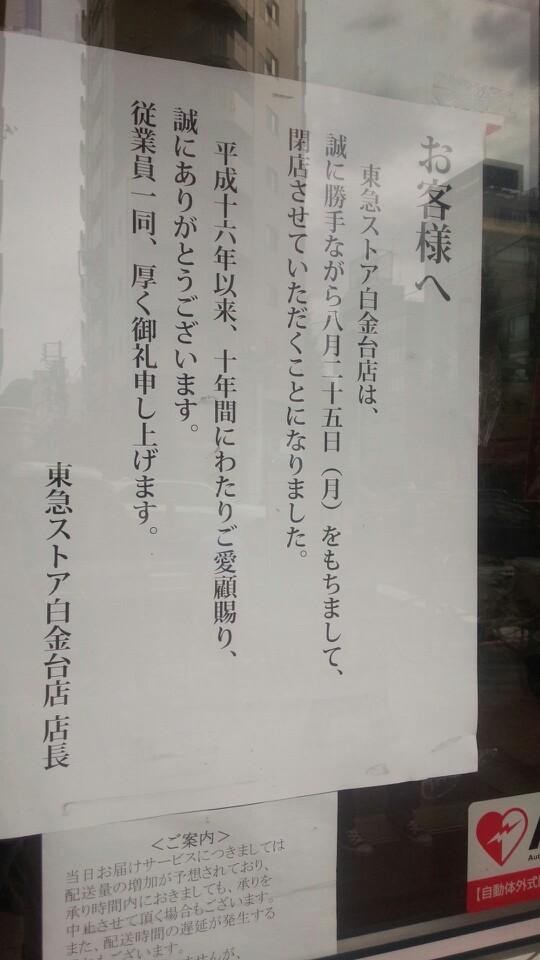 お客様へ
東急ストア白金台店は、
誠に勝手ながら八月二十五日（月）をもちまして、
閉店させていただくことになりました。
平成十六年以来、十年間にわたりご愛顧賜り、
誠にありがとうございます。
従業員一同、厚く御礼申し上げます。
東急ストア白金台店 店長
＜ご案内＞
当日お届けサービスにつきましては
配送量の増加が予想されており、
承り時間内におきましても、承りを
中止させて頂く場合もございます。
また、配送時間の遅延が発生する
ございます。
ませんが、
A
Aut
【自動体外式